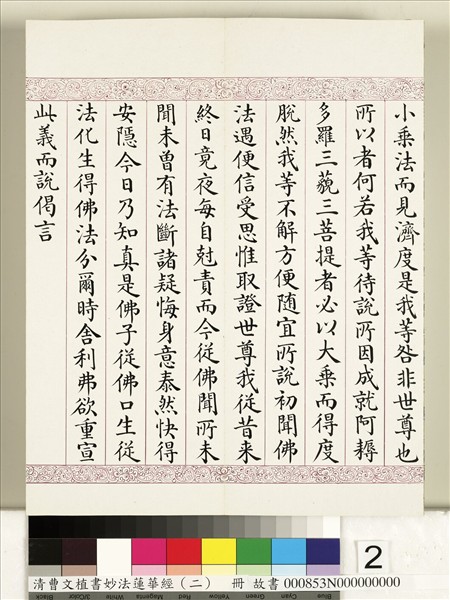 小乘法而見濟度是我等咎非世尊也
所以者何若我等待說所因成就阿耨
多羅三藐三菩提者必以大乘而得度
脫然我等不解方便隨宜所說初聞佛
法遇便信受思惟取證世尊我從昔来
終日竟夜每自尅責而今從佛聞所未
聞未曽有法斷諸疑悔身意泰然快得
安隱今日乃知真是佛子從佛口生從
法化生得佛法分爾時舍利弗欲重宣
此義而說偈言
2
Black 3/Color White Magenta Red Yellow Green Cyan Blue
清曹文植書妙法蓮華經（二） 冊 故書 000853N000000000